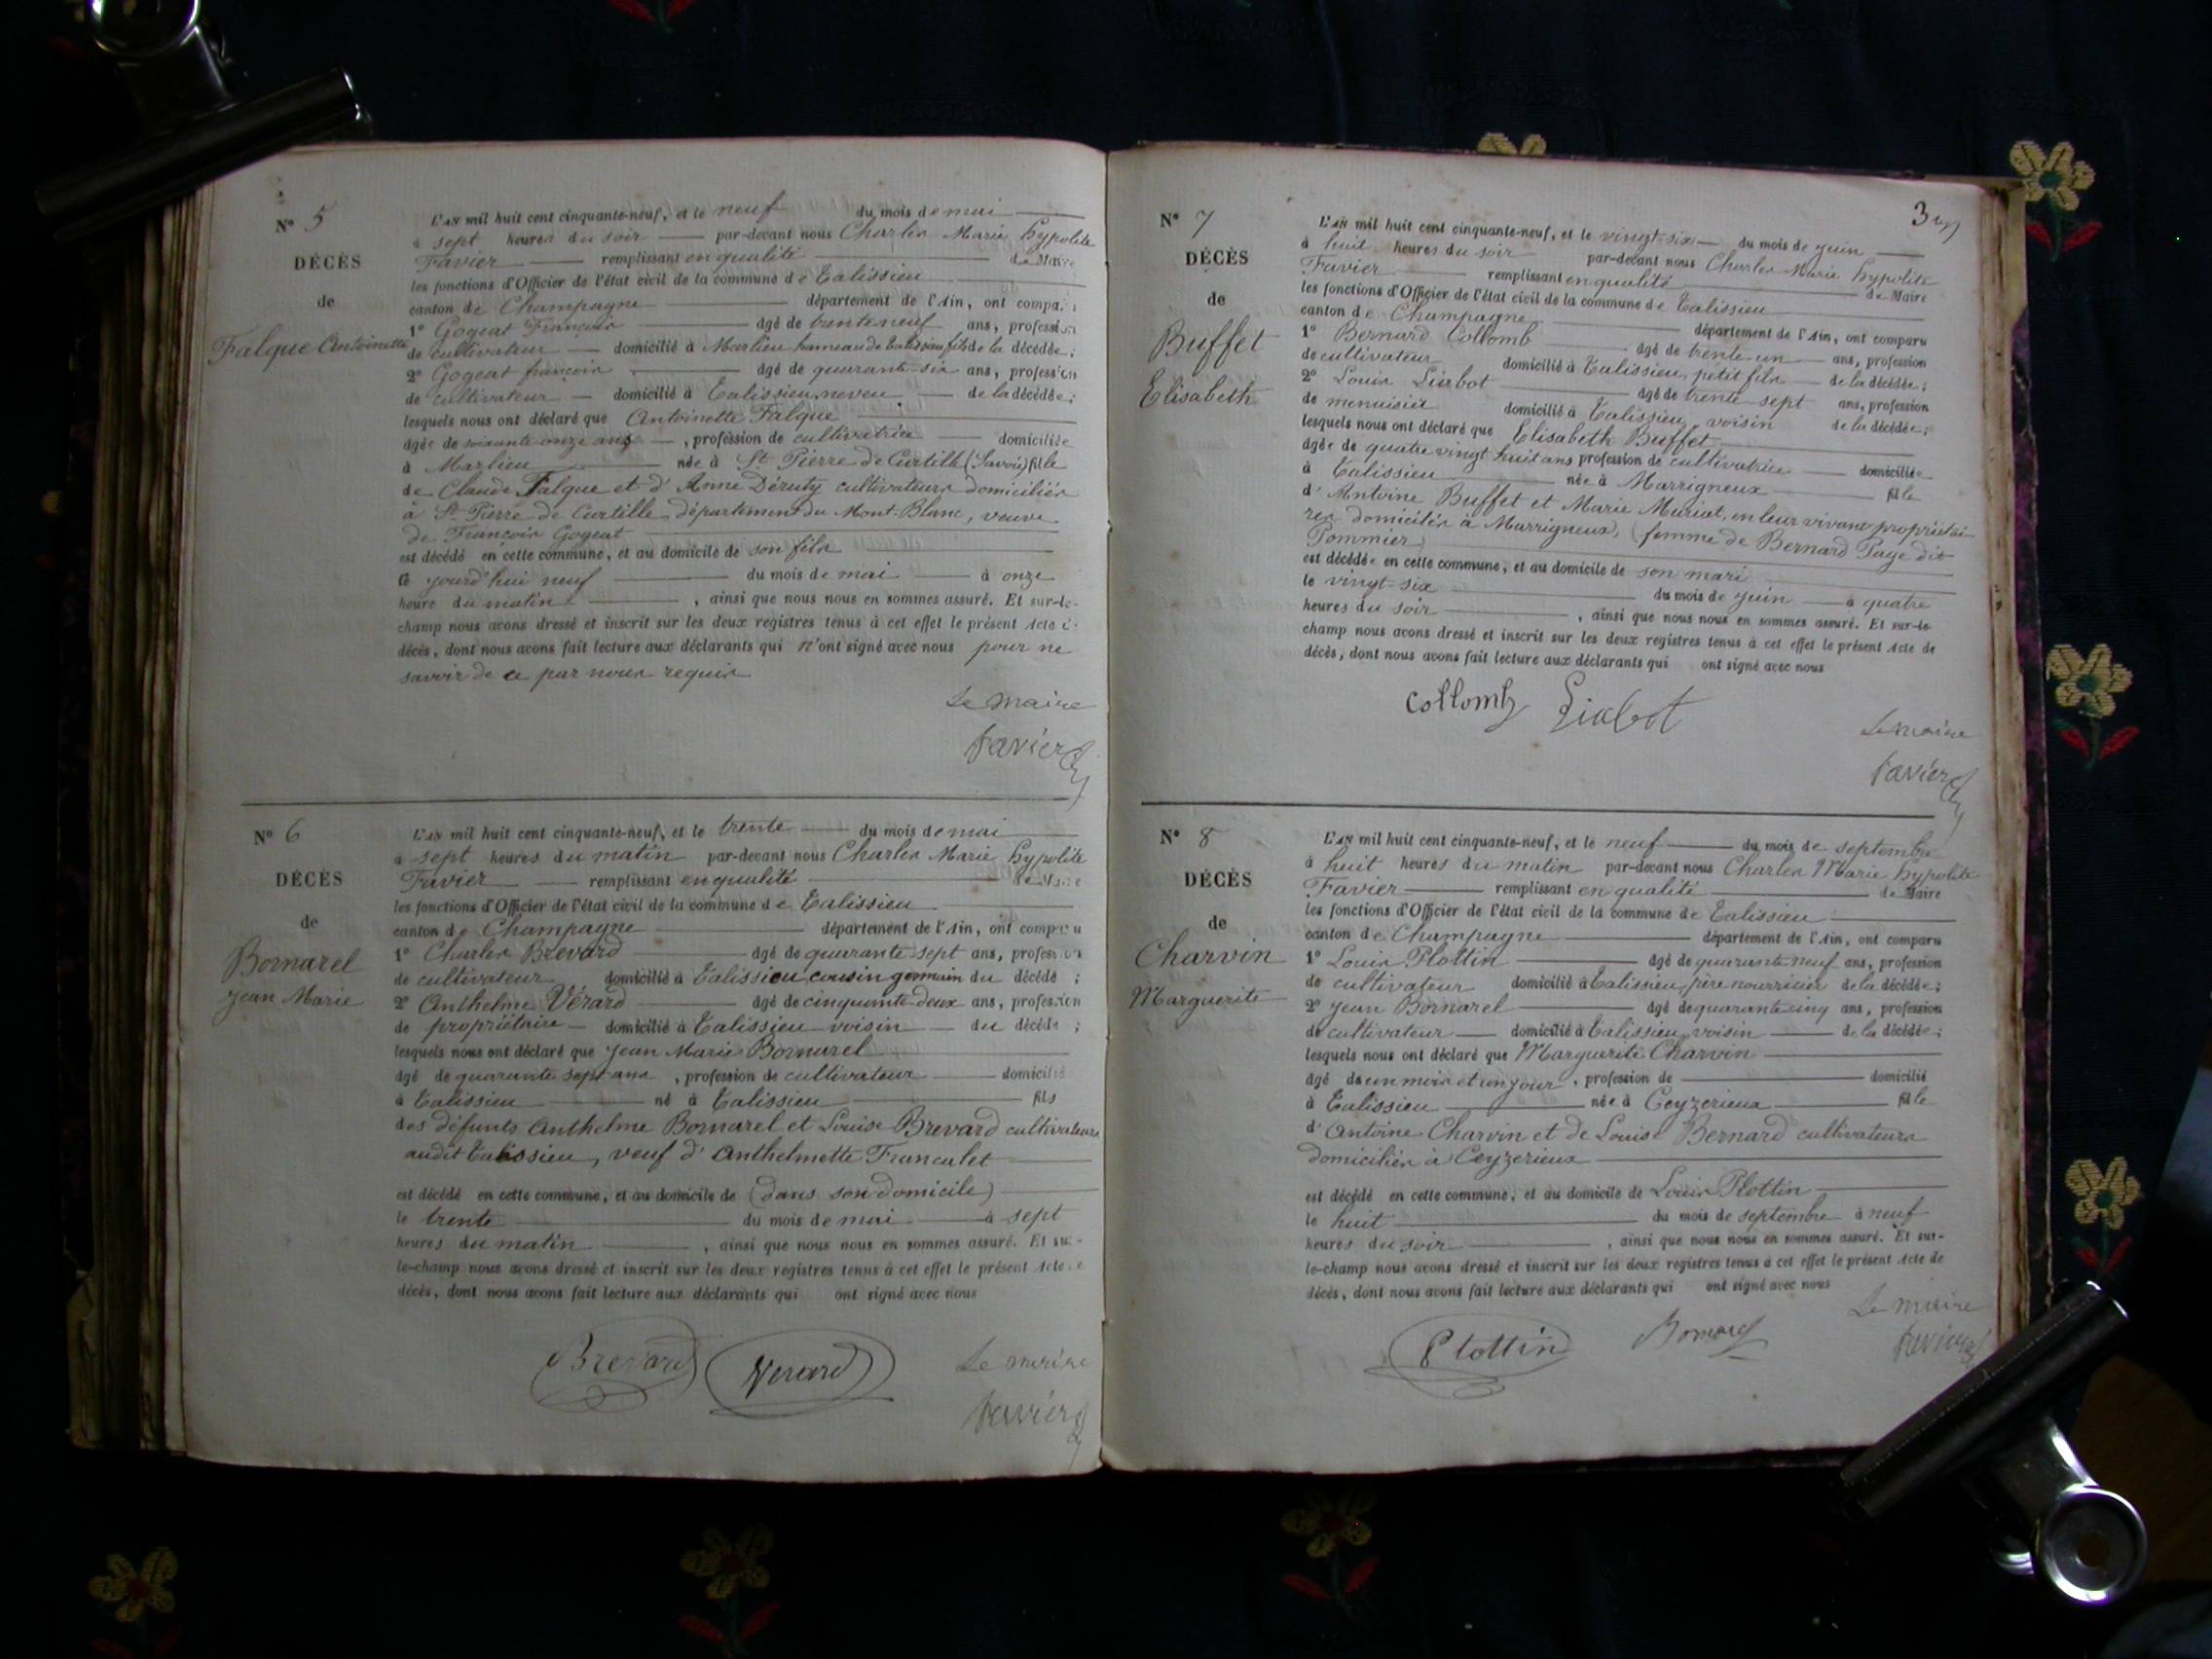 Nº 5
DÉCÈS
de
Falque Antoinette
L'AN mil huit cent cinquante-neuf, et le neuf du mois de mai
à sept heures du soir par-devant nous Charles Marie hypolite
Favier remplissant en qualité de Maire
les fonctions d'Officier de l'état civil de la commune de Talissieu
canton de Champagne département de l'Ain, ont compa
1º Gogeat François âgé de trente neuf ans, profession
de cultivateur domicilié à Marlieu hameau de Talissieu fils de la décédée ;
2º Gogeat françois âgé de quarante-six ans, profession
de cultivateur domicilié à Talissieu, neveu de la décédée ;
lesquels nous ont déclaré que Antoinette Falque
âgée de soixante onze ans , profession de cultivatrice domiciliée
à Marlieu née à St Pierre de Curtille (Savoie) fille
de Claude Falque et d'Anne Déruty cultivateurs domiciliés
à St Pierre de Curtille département du Mont-Blanc, veuve
de François Gogeat
est décédé en cette commune, et au domicile de son fils
le jourd'hui neuf du mois de mai à onze
heure du matin , ainsi que nous nous en sommes assuré. Et sur-le-
champ nous avons dressé et inscrit sur les deux registres tenus à cet effet le présent Acte
décès, dont nous avons fait lecture aux déclarants qui n'ont signé avec nous pour ne
savoir de ce par nous requis
Le maire
favier
Nº 6
DÉCÈS
de
Bornarel
Jean Marie
L'AN mil huit cent cinquante-neuf, et le trente du mois de mai
à sept heures du matin par-devant nous Charles Marie hypolite
Favier remplissant en qualité de Maire
les fonctions d'Officier de l'état civil de la commune de Talissieu
canton de Champagne département de l'Ain, ont comparu
1º Charles Brevard âgé de quarante sept ans, profession
de cultivateur domicilié à Talissieu cousin germain du décédé ;
2º Anthelme Vérard âgé de cinquante-deux ans, profession
de propriétaire domicilié à Talissieu voisin du décédé ;
lesquels nous ont déclaré que Jean Marie Bornarel
âgé de quarante sept ans , profession de cultivateur domicilié
à Talissieu né à Talissieu fils
des défunts Anthelme Bornarel et Louise Brevard cultivateurs
audit Talissieu, veuf d'Anthelmette Francalet
est décédé en cette commune, et au domicile de (dans son domicile)
le trente du mois de mai à sept
heures du matin , ainsi que nous nous en sommes assuré. Et sur-
le-champ nous avons dressé et inscrit sur les deux registres tenus à cet effet le présent Acte
décès, dont nous avons fait lecture aux déclarants qui ont signé avec nous
Brevard Verard Le maire
favier
3
Nº 7
DÉCÈS
de
Buffet
Elisabeth
L'AN mil huit cent cinquante-neuf, et le vingt-six du mois de juin
à huit heures du soir par-devant nous Charles Marie hypolite
Favier remplissant en qualité de Maire
les fonctions d'Officier de l'état civil de la commune de Talissieu
canton de Champagne département de l'Ain, ont comparu
1º Bernard Collomb âgé de trente-un ans, profession
de cultivateur domicilié à Talissieu, petit fils de la décédée ;
2º Louis Liabot âgé de trente-sept ans, profession
de menuisier domicilié à Talissieu, voisin de la décédée ;
lesquels nous ont déclaré que Elisabeth Buffet
âgée de quatre vingt huit ans profession de cultivatrice domiciliée
à Talissieu née à Marrigneux fille
d'Antoine Buffet et Marie Muriat, en leur vivant propriétai-
res domiciliés à Marrigneux, (femme de Bernard Page dit
Pommier)
est décédée en cette commune, et au domicile de son mari
le vingt-six du mois de juin à quatre
heures du soir , ainsi que nous nous en sommes assuré. Et sur-le
champ nous avons dressé et inscrit sur les deux registres tenus à cet effet le présent Acte de
décès, dont nous avons fait lecture aux déclarants qui ont signé avec nous
Collomb Liabot
Le maire
favier
Nº 8
DÉCÈS
de
Charvin
Marguerite
L'AN mil huit cent cinquante-neuf, et le neuf du mois de septembre
à huit heures du matin par-devant nous Charles Marie hypolite
Favier remplissant en qualité de Maire
les fonctions d'Officier de l'état civil de la commune de Talissieu
canton de Champagne département de l'Ain, ont comparu
1º Louis Plottin âgé de quarante-neuf ans, profession
de cultivateur domicilié à Talissieu, père nourricier de la décédée ;
2º Jean Bornarel âgé de quarante cinq ans, profession
de cultivateur domicilié à Talissieu, voisin de la décédée ;
lesquels nous ont déclaré que Marguerite Charvin
âgé de un mois et un jour , profession de domicilié
à Talissieu née à Ceyzerieux fille
d'Antoine Charvin et de Louise Bernard cultivateurs
domiciliés à Ceyzerieux
est décédé en cette commune, et au domicile de Louis Plottin
le huit du mois de septembre à neuf
heures du soir , ainsi que nous nous en sommes assuré. Et sur-
le-champ nous avons dressé et inscrit sur les deux registres tenus à cet effet le présent Acte de
décès, dont nous avons fait lecture aux déclarants qui ont signé avec nous
Le maire
Plottin Bornarel favier